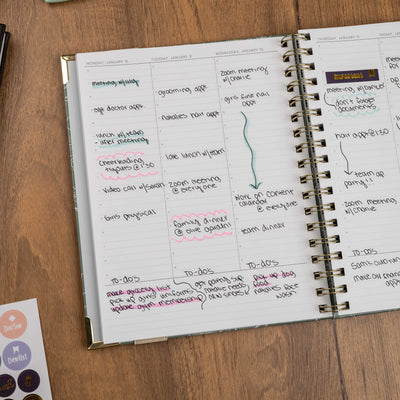 MONDAY, JANUARY 8
meeting w/
eye doctor appt.
lunch w/team
- after meeting
cheerleading
tryouts @ 1:30
video call w/Susan
girls physical
TO-DO'S
make grocery list
pick up girls uniforms
update gym membership
TUESDAY, JANUARY 9
grooming appt.
natalies hair appt
late lunch w/team
zoom meeting
@ everyone
family dinner
@ olive garden!
TO-DO'S
get party sup
natalie needs
new shoes
WEDNESDAY, JANUARY 10
zoom meeting
w/claire
girls fine nail
appt
work on content
calendar
@ everyone
team dinner
TO-DO'S
pick up dog
food
natalies face
wash
THURSDAY, JANUARY 11
Important
meeting w/
don't forget
documents
hair appt @ 1:30
team up
party!!
zoom meeting
w/claire
TO-DO'S
make
Doctor
Dentist